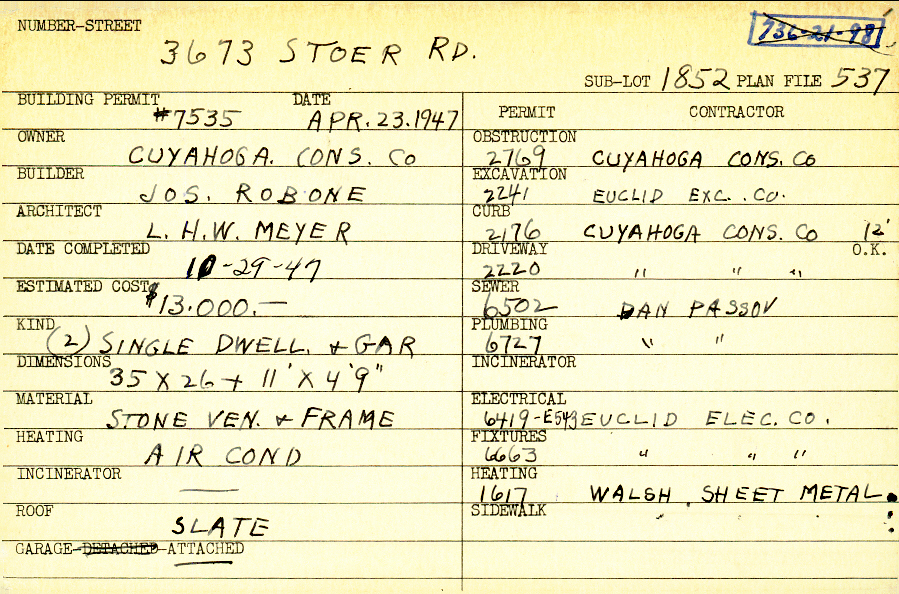 NUMBER-STREET
736-21-98
3673 STOER RD.
SUB-LOT 1852 PLAN FILE 537
BUILDING PERMIT DATE
#7535 APR.23.1947
OWNER
CUYAHOGA. CONS. Co
BUILDER
JOS. ROBONE
ARCHITECT
L. H.W. MEYER
DATE COMPLETED
10-29-47
ESTIMATED COST
$13.000.—
KIND
(2) SINGLE DWELL. & GAR
DIMENSIONS
35 X 26 + 11' X 4'9"
MATERIAL
STONE VEN. & FRAME
HEATING
AIR COND
INCINERATOR
—
ROOF
SLATE
GARAGE-DETACHED-ATTACHED
PERMIT CONTRACTOR
OBSTRUCTION
2769 CUYAHOGA CONS. Co
EXCAVATION
2241 EUCLID EXC. Co.
CURB
2176 CUYAHOGA CONS. Co 12'
DRIVEWAY O.K.
2220 " " "
SEWER
6502 DAN PASSOV
PLUMBING
6727 " "
INCINERATOR
ELECTRICAL
6419-E543 EUCLID ELEC. CO.
FIXTURES
6663 " " "
HEATING
1617 WALSH SHEET METAL.
SIDEWALK